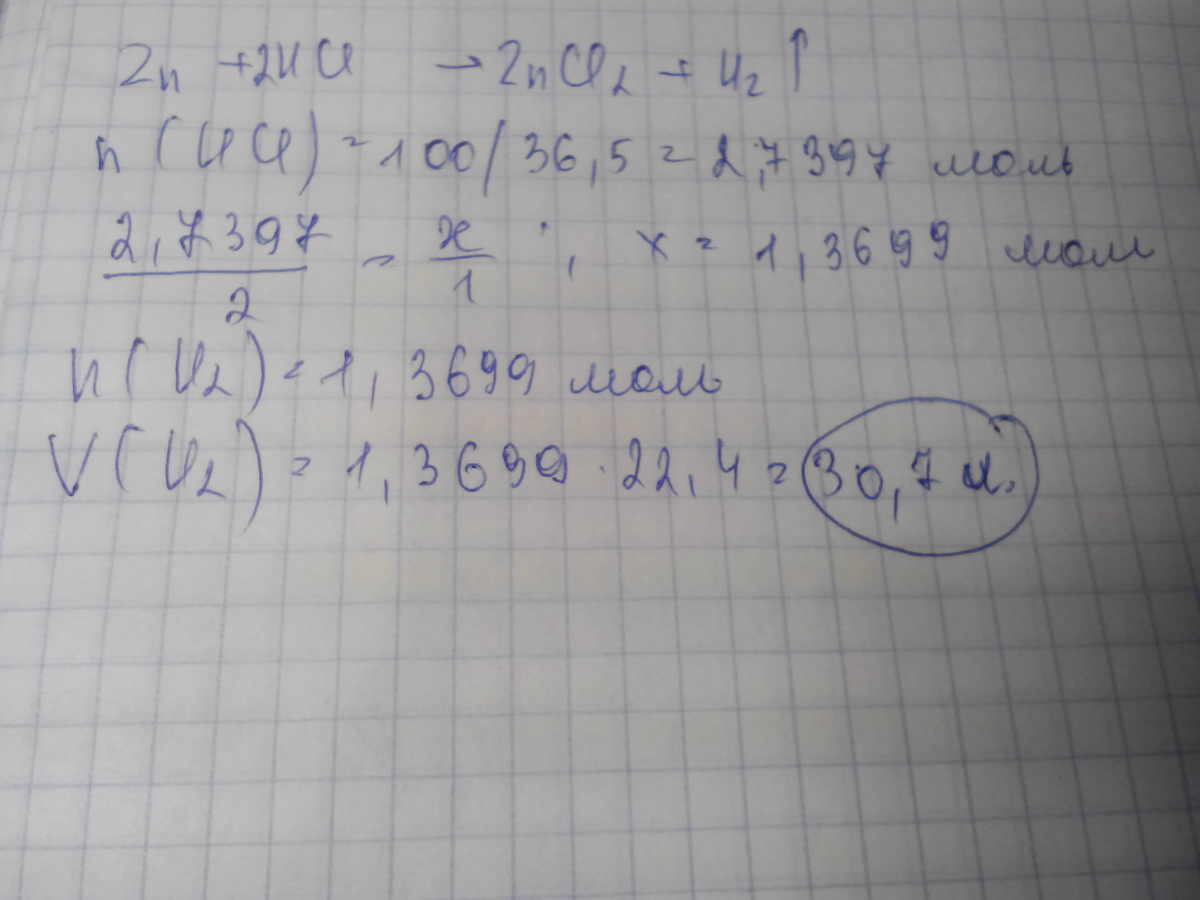 Zn + 2HCl → ZnCl₂ + H₂ ↑
n (HCl) = 100 / 36,5 = 2,7397 моль
2,7397 / 2 = x / 1 ; x = 1,3699 мол
n (H₂) = 1,3699 моль
V (H₂) = 1,3699 · 22,4 = 30,7 л.